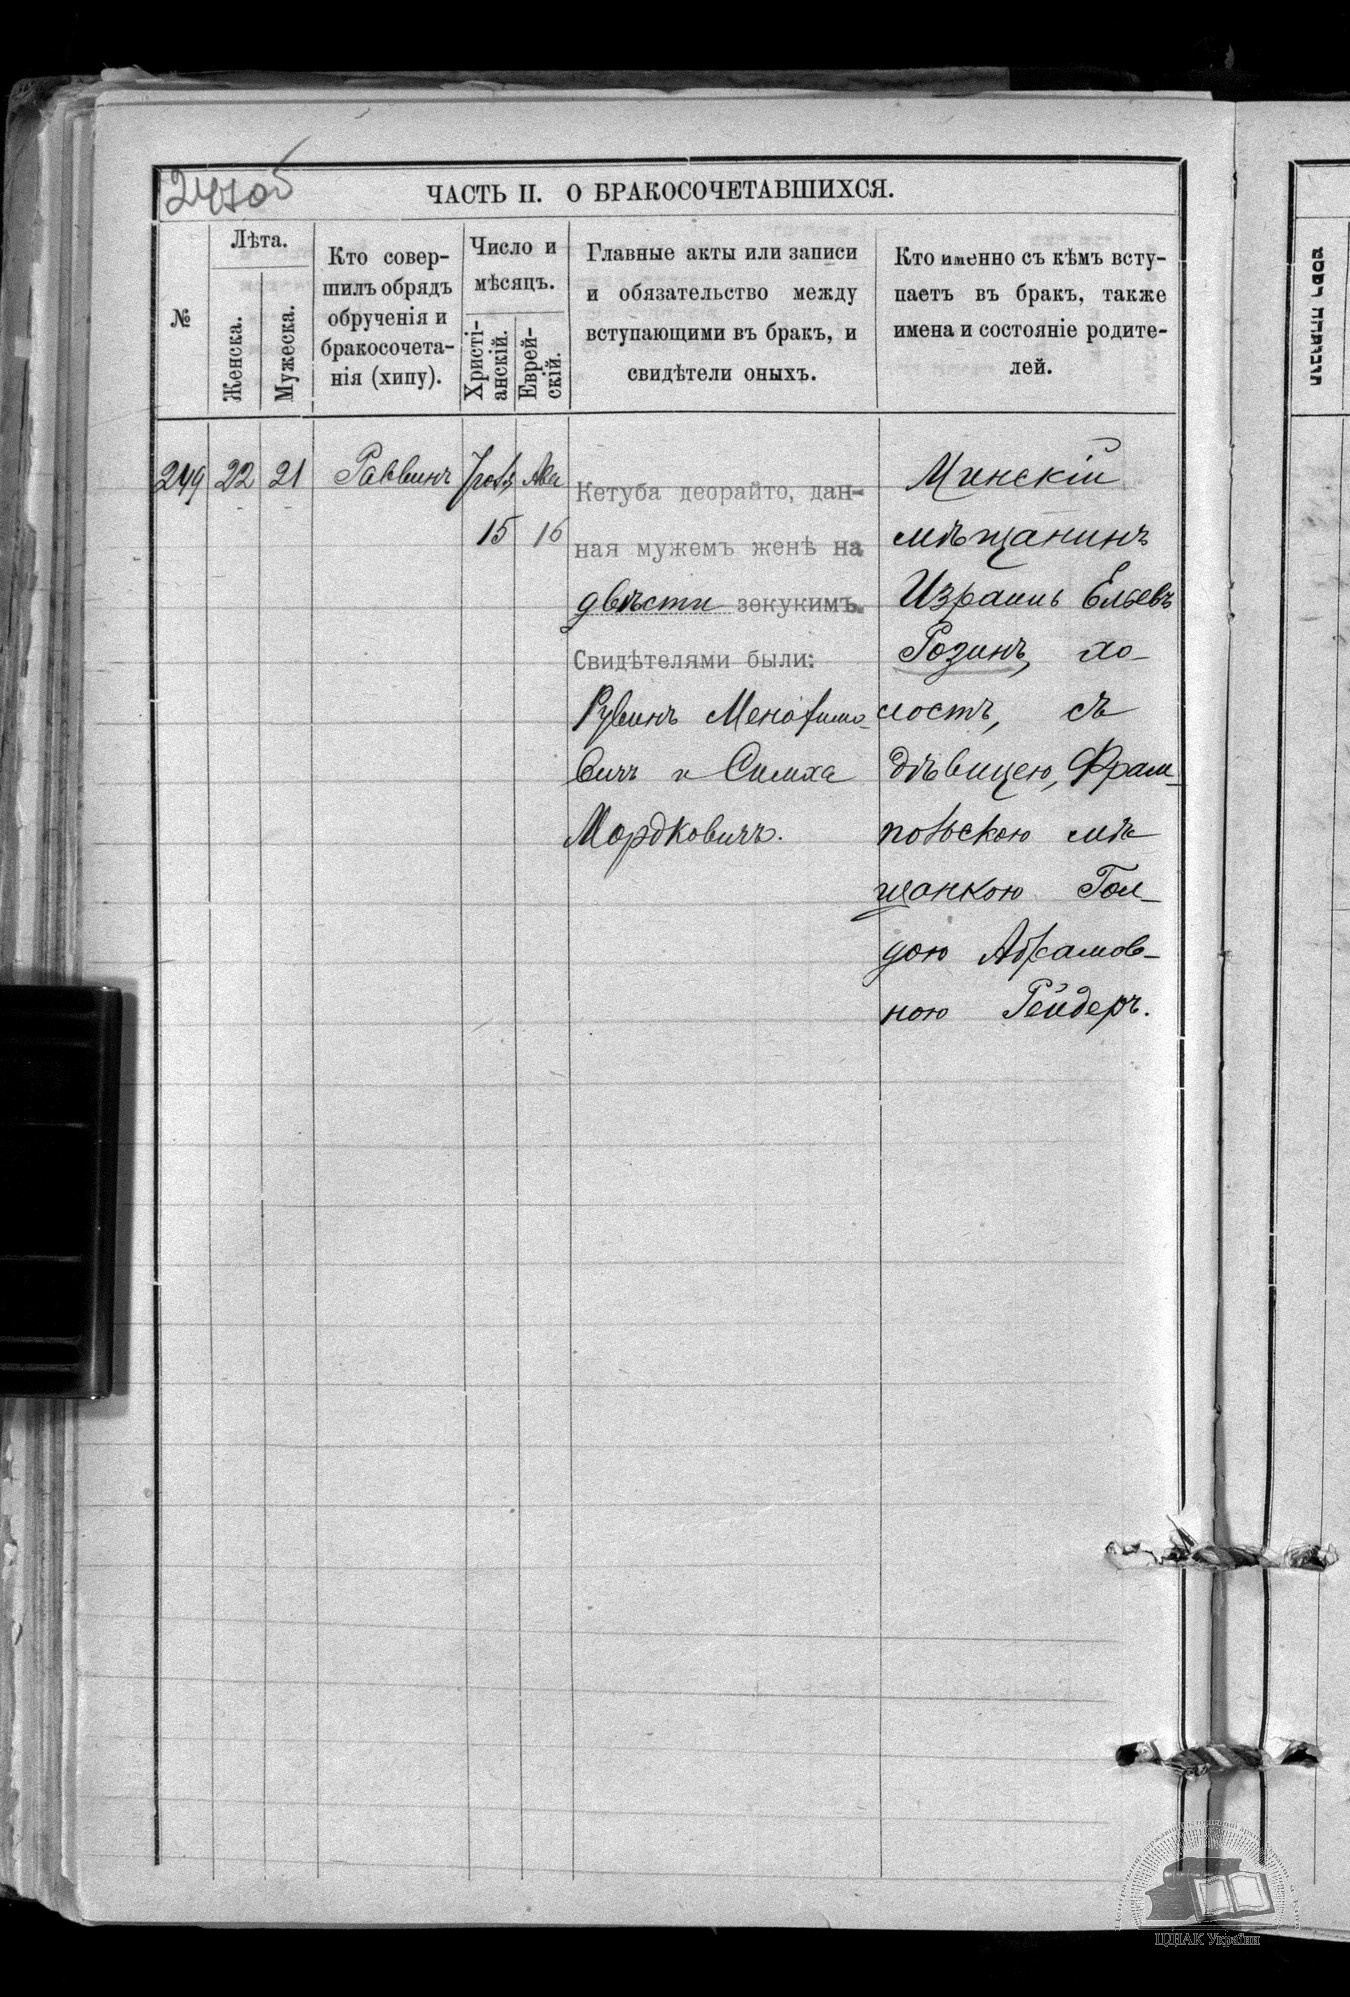 247об
ЧАСТЬ II. О БРАКОСОЧЕТАВШИХСЯ.
№
Лѣта.
Женска.
Мужеска.
Кто совер-
шилъ обрядъ
обрученія и
бракосочета-
нія (хипу).
Число и
мѣсяцъ.
Христі-
анскій.
Еврей-
скій.
Главные акты или записи
и обязательство между
вступающими въ бракъ, и
свидѣтели оныхъ.
Кто именно съ кѣмъ всту-
паетъ въ бракъ, также
имена и состояніе родите-
лей.
249 22 21 Раввинъ Ава
15 16
Кетуба деорайто, дан-
ная мужемъ женѣ на
двѣсти зекукимъ.
Свидѣтелями были:
Рувинъ Менахимо-
вичъ и Симха
Мордковичъ.
Минскій
мѣщанинъ
Израиль Ельевъ
Розинъ, хо-
лостъ, съ
дѣвицею, Фрам-
польскою мѣ
щанкою Гол-
дою Абрамов-
ною Рейдеръ.
ЦДІАК України